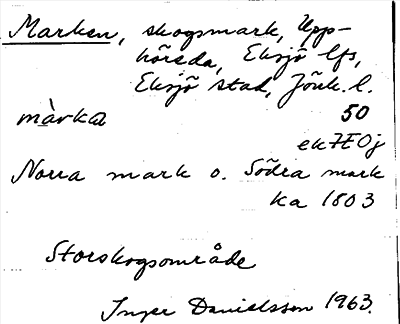 Marken, skogsmark, Upp-
hörsda, Eksjö lfs,
Eksjö stad, Jönk. l.
màrka 50
ek 7E0j
Norra mark o. Södra mark
ka 1803
Storskogsområde
Inger Danielsson 1963.